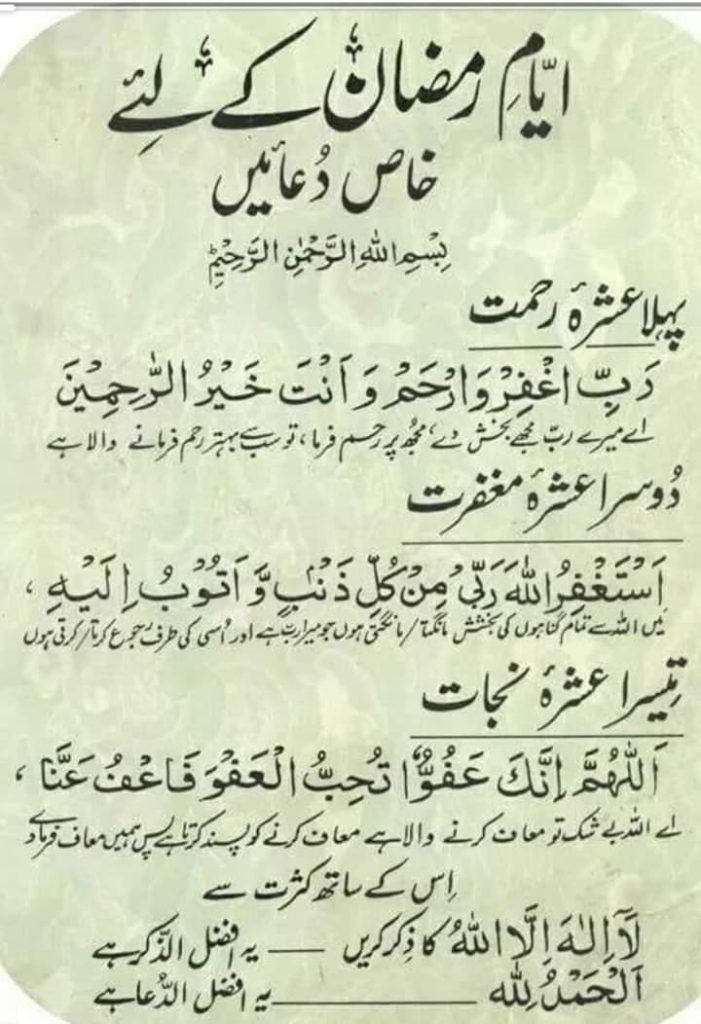 ایّامِ رمضان کے لئے
خاص دُعائیں
بِسْمِ اللهِ الرَّحْمٰنِ الرَّحِيْمِ
پہلا عشرۂ رحمت
رَبِّ اغْفِرْ وَارْحَمْ وَ اَنْتَ خَيْرُ الرّٰحِمِيْنَ
اے میرے ربّ مجھے بخش دے، مجھ پر رحم فرما، تو سب سے بہتر رحم فرمانے والا ہے
دُوسرا عشرۂ مغفرت
اَسْتَغْفِرُ اللهَ رَبِّىْ مِنْ كُلِّ ذَنْبٍ وَّ اَتُوْبُ اِلَيْهِ ،
میں اللہ سے تمام گناہوں کی بخشش مانگتا/مانگتی ہوں جو میرا ربّ ہے اور اُسی کی طرف رجوع کرتا/کرتی ہوں
تیسرا عشرۂ نجات
اَللّٰهُمَّ اِنَّكَ عَفُوٌّا تُحِبُّ الْعَفْوَ فَاعْفُ عَنَّا ،
اے اللہ بے شک تو معاف کرنے والا ہے معاف کرنے کو پسند کرتا ہے پس ہمیں معاف فرما دے
اِس کے ساتھ کثرت سے
لَآ اِلٰهَ اِلَّا اللهُ کا ذکر کریں — یہ افضل الذّکر ہے
اَلْحَمْدُ لِلّٰه ——— یہ افضل الدُّعا ہے